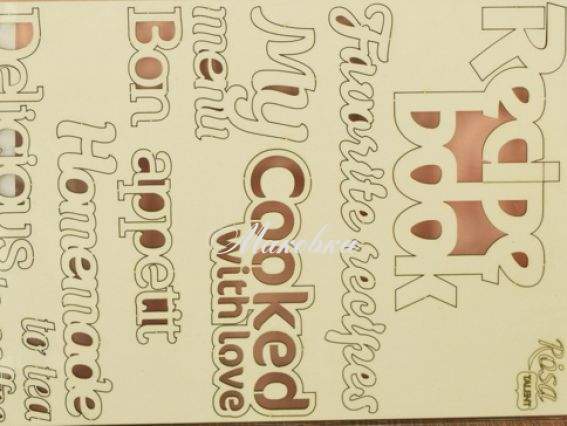 Recipe
book
Rosa
TALENT
Favorite recipes
My
menu
Cooked
with love
Маковка
Bon
appetit
Homemade
to tea
Delicious